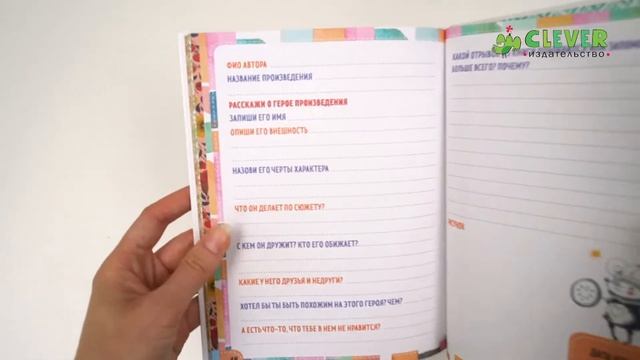 CLEVER
ИЗДАТЕЛЬСТВО
ФИО АВТОРА
НАЗВАНИЕ ПРОИЗВЕДЕНИЯ
РАССКАЖИ О ГЕРОЕ ПРОИЗВЕДЕНИЯ
ЗАПИШИ ЕГО ИМЯ
ОПИШИ ЕГО ВНЕШНОСТЬ
НАЗОВИ ЕГО ЧЕРТЫ ХАРАКТЕРА
ЧТО ОН ДЕЛАЕТ ПО СЮЖЕТУ?
С КЕМ ОН ДРУЖИТ? КТО ЕГО ОБИЖАЕТ?
КАКИЕ У НЕГО ДРУЗЬЯ И НЕДРУГИ?
ХОТЕЛ БЫ ТЫ БЫТЬ ПОХОЖИМ НА ЭТОГО ГЕРОЯ? ЧЕМ?
А ЕСТЬ ЧТО-ТО, ЧТО ТЕБЕ В НЕМ НЕ НРАВИТСЯ?
КАКОЙ ОТРЫВОК
БОЛЬШЕ ВСЕГО? ПОЧЕМУ?
РИСУНОК